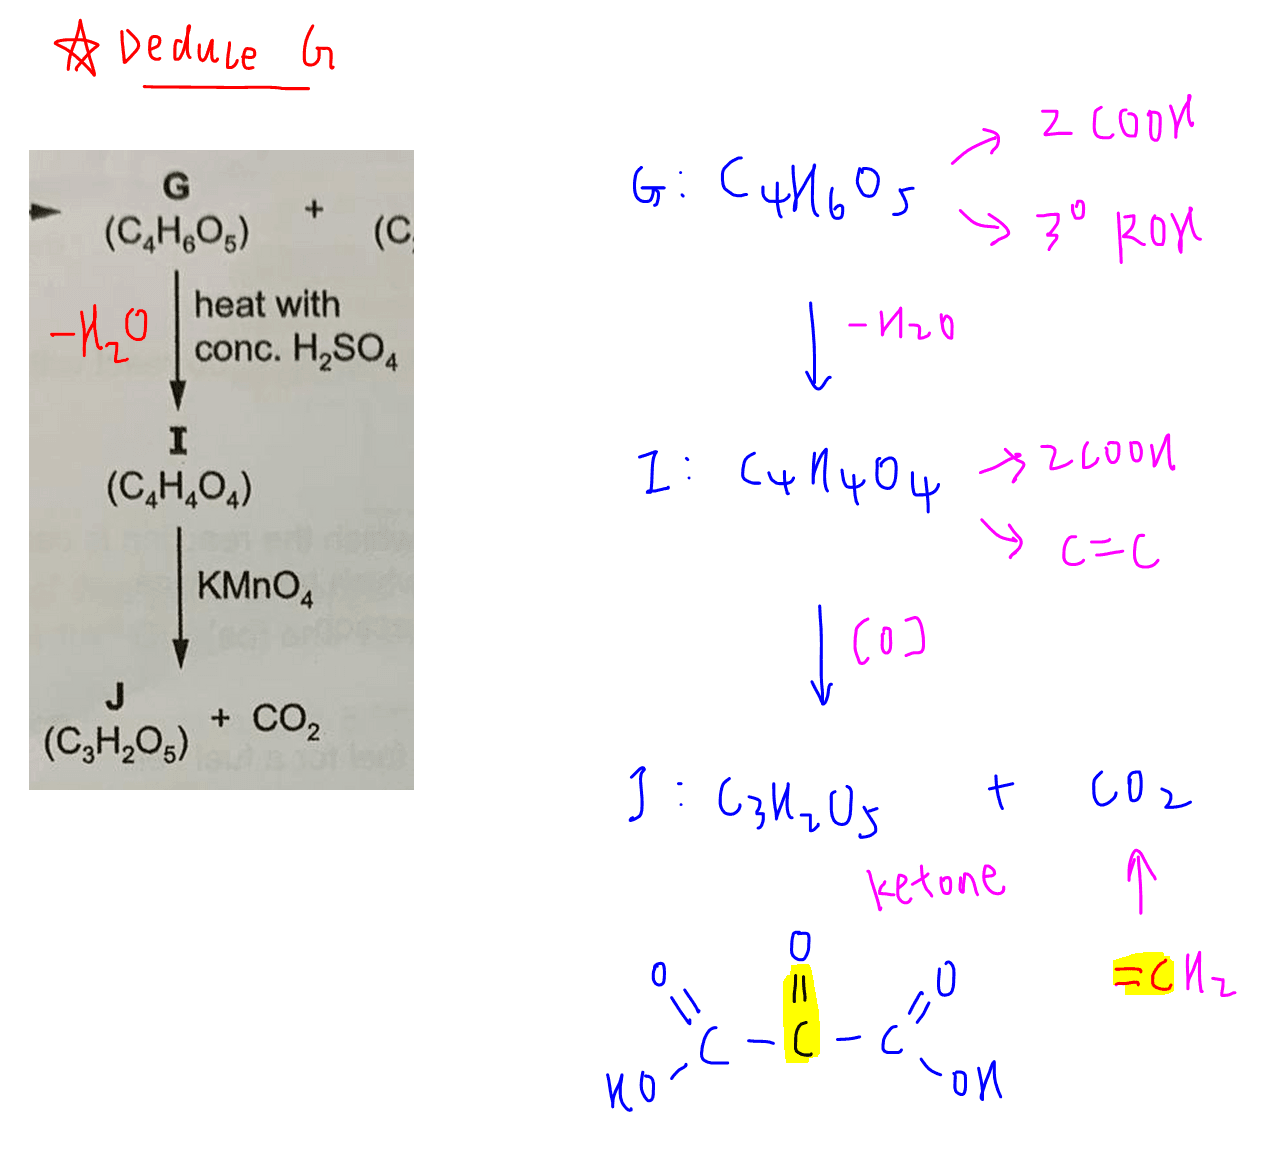 ☆ Deduce G
G
(C₄H₆O₅) + (C
-H₂O
heat with
conc. H₂SO₄
I
(C₄H₄O₄)
KMnO₄
J
(C₃H₂O₅) + CO₂
G: C₄H₆O₅ → 2 COOH
→ 3° ROH
-H₂O
I: C₄H₄O₄ → 2COOH
→ C=C
[O]
J: C₃H₂O₅ + CO₂
ketone
=CH₂
O O O
C - C - C
HO OH